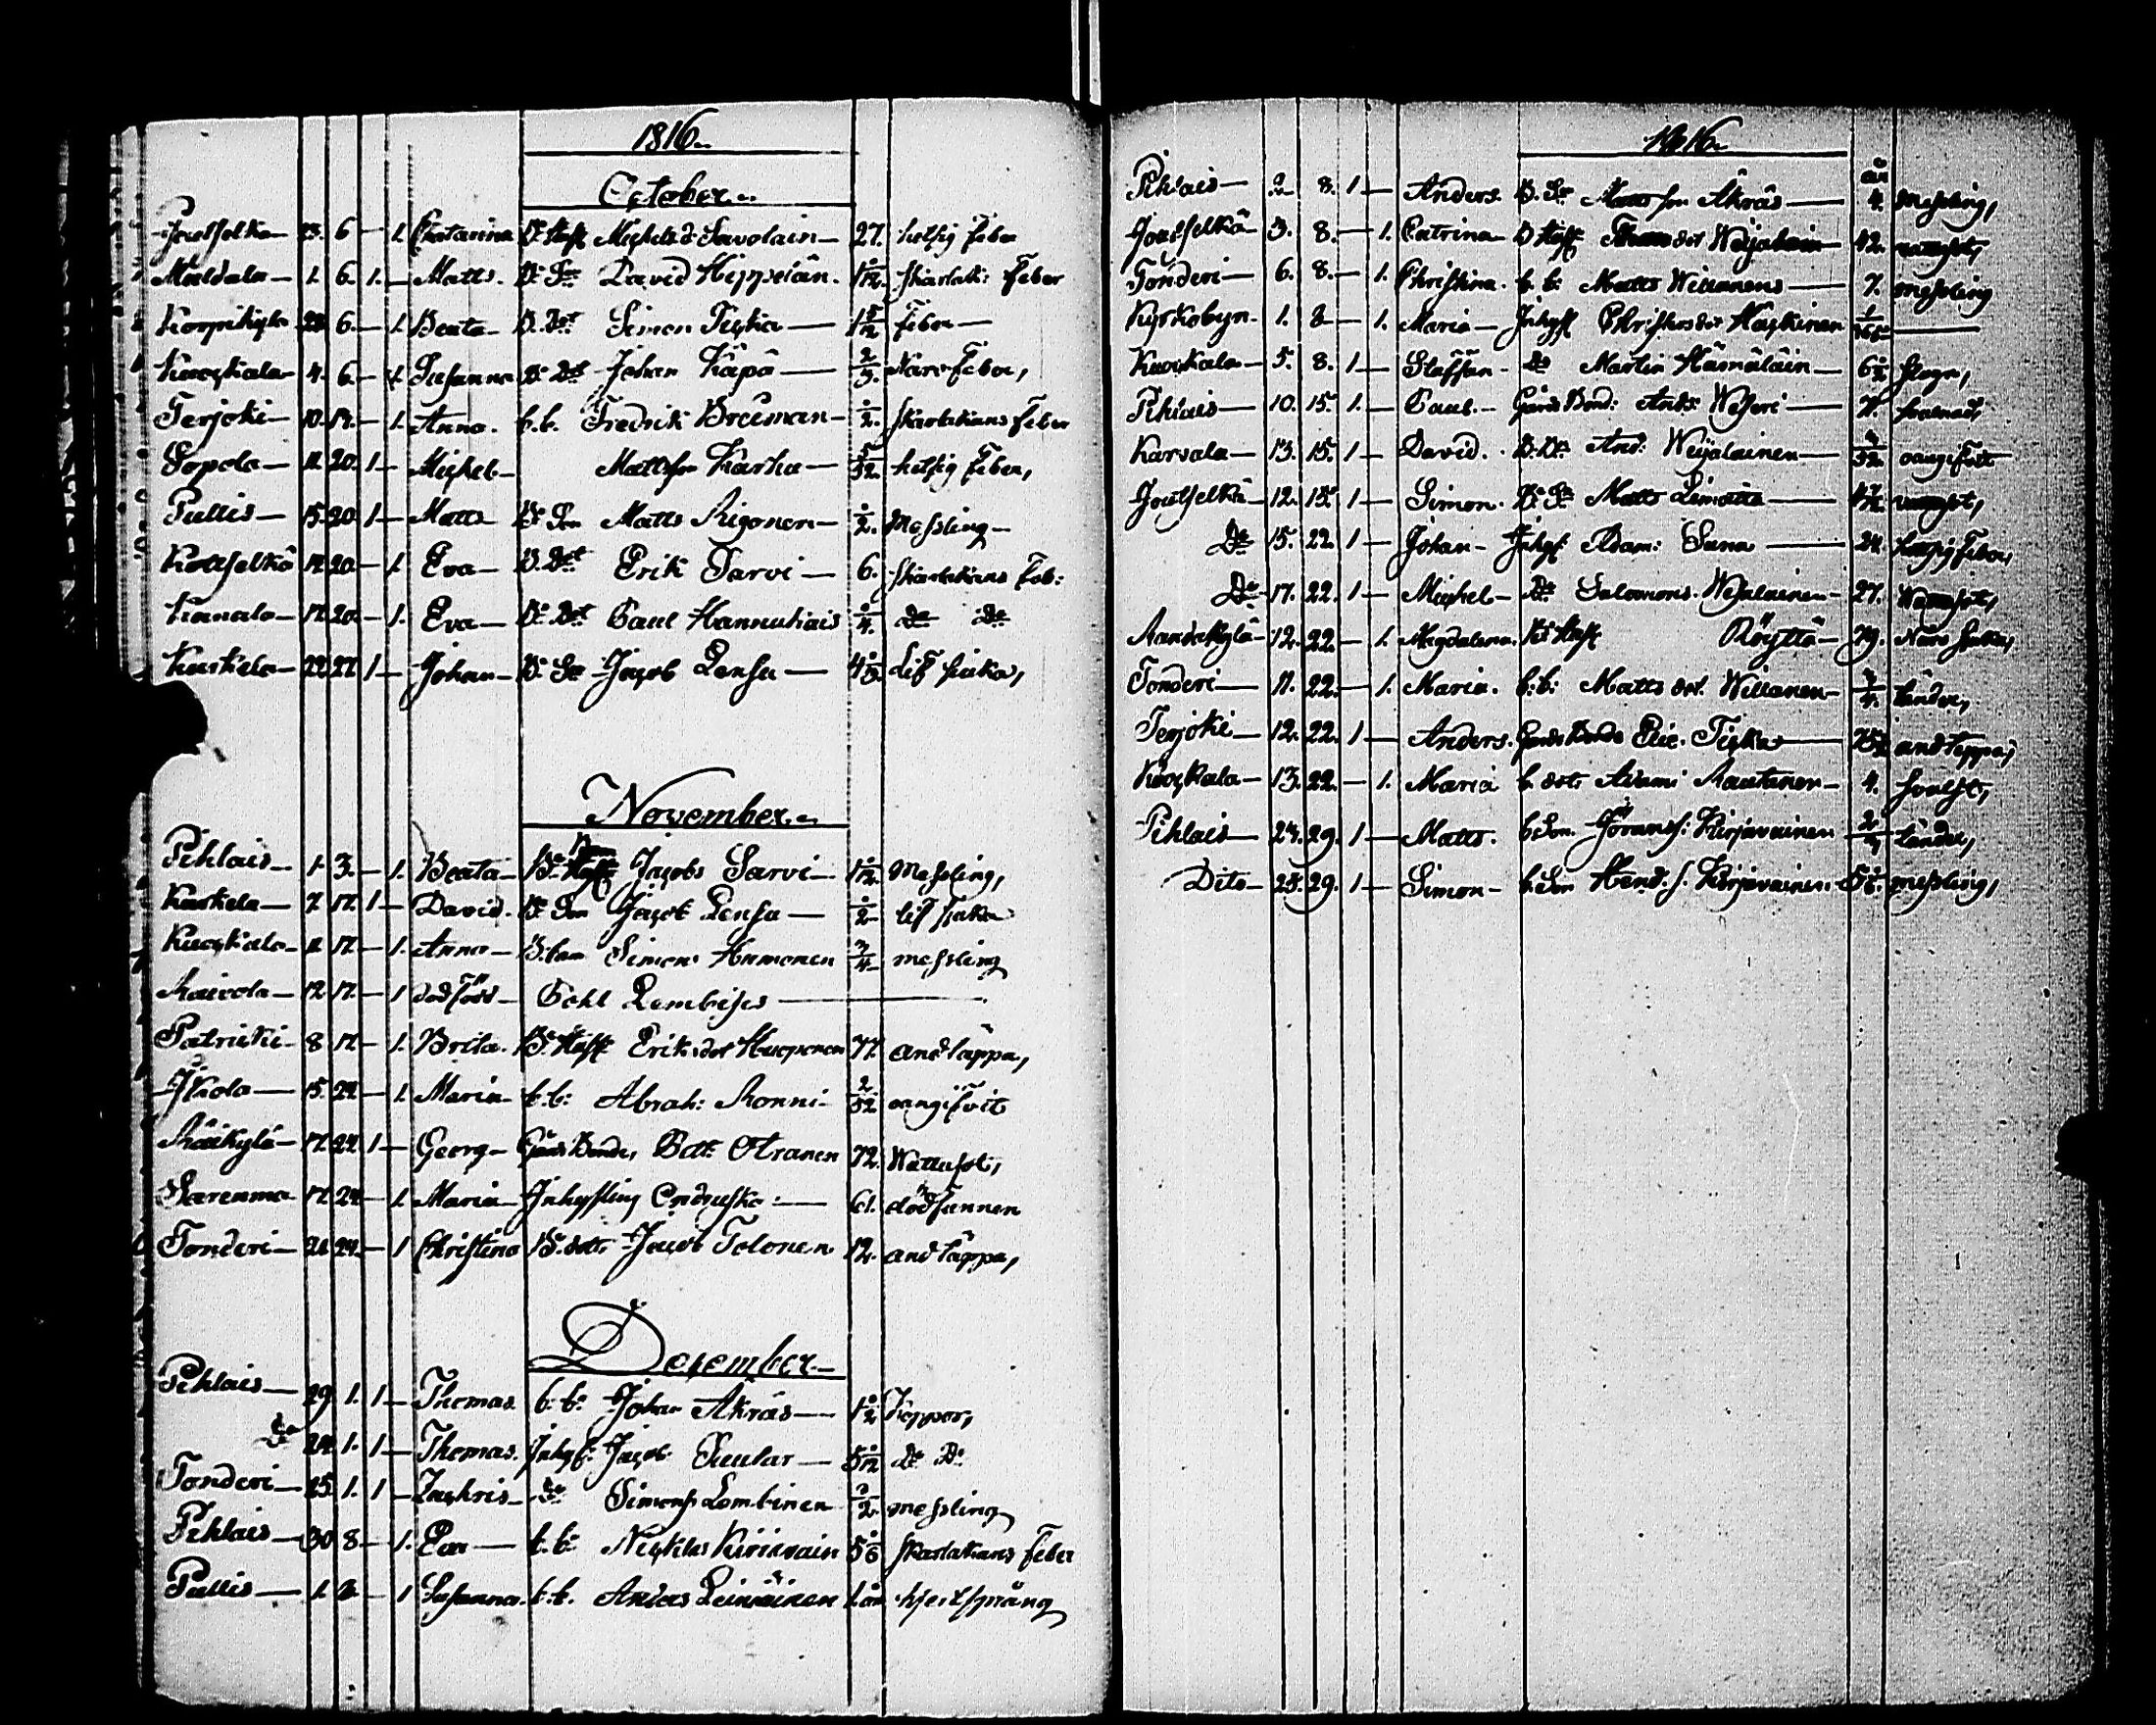 1816
October
Joutselkä 23. 6 — 1. Catarina B: Hust Michelsd: Savolain 27. hetsig feber
Maldala 1. 6. 1. — Matts. B: Son David Hippeläin. skarlak: feber
Korpikylä 6. — 1. Beata B. Dot Simon Tiska feber
Kuockala 4. 6. — 1. Susanna B: Dot Johan Käpä 2/3. Narv feber,
Terjoki 10. 17. — 1. Anna. b.b. Fredrik 1/2. skarlakans feber
Sopola 11. 20. 1 — Michel Mattsson Karhu 5/52. hetsig feber,
Pullis 15. 20. 1 — Matts B: Son Matts Rigonen 1/2. Messling
Kotselkä 17. 20. — 1. Eva B. Dot Erik Sarvi 6. skarlakans feb:
Kanala 17. 20. — 1. Eva B: Dot Paul Hannukais 1/4. do do
Kuokela 22. 27. 1 — Johan B. So Jacob Lensu lif siuka,
November
Pihlais 1. 3. — 1. Beata B: Jacobs Sarvi Messling,
Kuokela 7. 17. 1 — David. B: Son Jacob Lensu 1/2 lif siuka
Kuockala 11. 17. — 1. Anna B: barn Simons Humonen 3/4 messling
Raivola 12. 17. — 1 dödfödd Pohl Lembises
Patruki 8. 17. — 1. Brita. B: Hust Eriksdot Huoponen 77. andtäppa,
Ikola 15. 24. — 1. Maria b: b: Abrah: Ronni 2/52 oangifvit
Räikylä 17. 24. 1 — Georg Gårds Bonde, Otranen 72. Wattusot,
Sarenma 17. 24. — 1. Maria Inhysling Ondruska 61. död funnen
Tonderi 21. 24. — 1 Christina B: dott: Jacob Tolonen 12. andtäppa,
December
Pihlais 29. 1. 1 — Thomas. b: b: Johan Äkräs Koppor,
do 24. 1. 1 — Thomas. Inhys: Jacob Suular Do Do
Tonderi 25. 1. 1 — Zachris do Simons Lembinen messling
Pihlais 30. 8. — 1. Eva b: b: Nicklas Kiriavain 5 1/6 skarlakans feber
Pullis 1. 8. — 1 Susanna. b: b. Anders Leinoinen 1 år hjertspräng
1816
Pihlais 2. 8. 1 — Anders. B. So Mattsson Äkräs år 4. Messling,
Joutselkä 3. 8. — 1. Catrina B Hust Weijalain
Tonderi 6. 8. — 1. Christina. b. b: Matts Willanens 7. messling
Kyrkobyn 1. 8 — 1. Maria Inhys Christersdot Haykinen 1/365
Kuockala 5. 8. 1 — Staffan do Martin Hämäläin 6 1/2 slogn,
Pihlais 10. 15. 1. — Paul. Gårds Bond: And:
Karvala 13. 15. 1 — David. And: Weijalainen oangifvit
Joutselkä 12. 15. 1 — Simon. B: So Matts
Do 15. 22. 1 — Johan Inhys: Adam: Suna 24. hetsig feber,
Do 17. 22. 1 — Michel Do Salomons. Weijalainen 27. Wattusot,
Randakylä 12. 22. — 1. Magdalena. B: Hust Röyttä 79. Narv siuka,
Tonderi 11. 22. — 1. Maria. b: b: Matts dot. Willanen 3/4. tänder,
Terjoki 12. 22. 1 — Anders. Gårds Bonde Elie. Tiska andteppa,
Kuockala 13. 22. — 1. Maria b. dott: Adami Rautanen 4. svulst,
Pihlais 24. 29. 1 — Matts. b. Son Görans s: Kirjavainen tänder,
Dito 25. 29. 1 — Simon b. Son Hend. s. Kirjavainen messling,